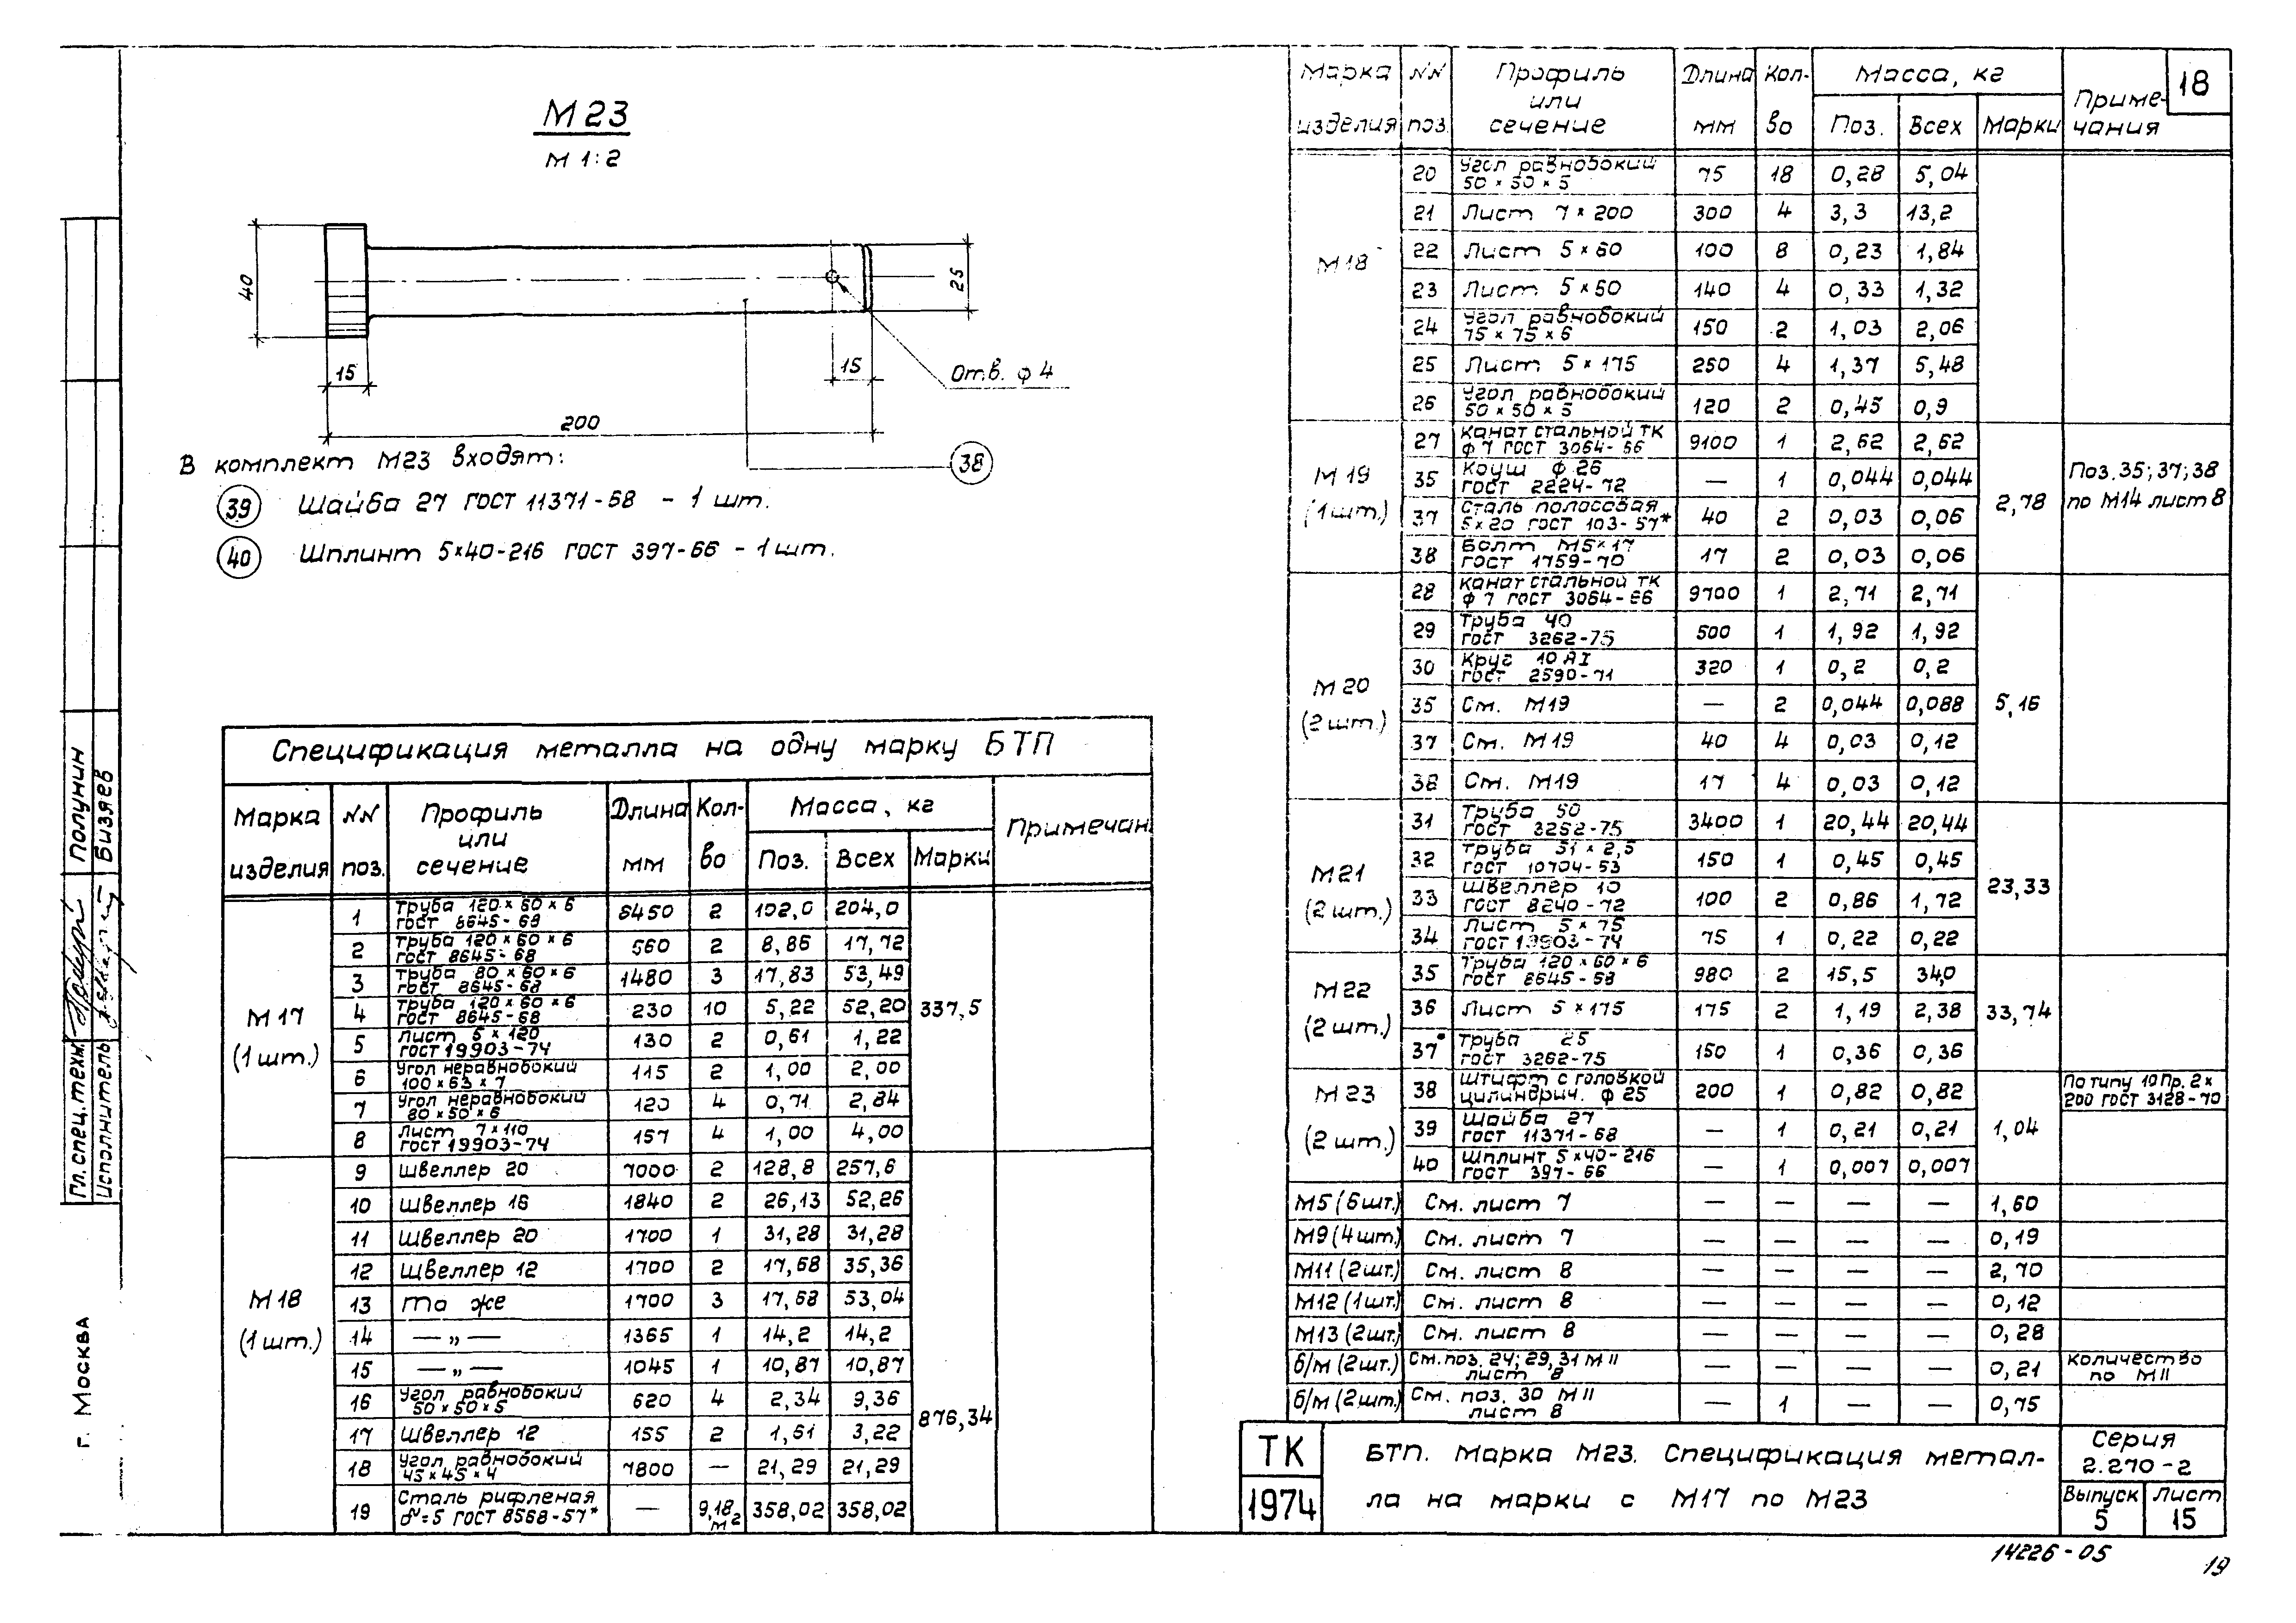 М 23
М 1:2
40
15
200
15
25
Отв. ф 4
38
В комплект М23 входят:
39 Шайба 27 ГОСТ 11371-68 - 1 шт.
40 Шплинт 5×40-216 ГОСТ 397-66 - 1 шт.
Спецификация металла на одну марку БТП
Марка изделия | NN поз. | Профиль или сечение | Длина мм | Кол-во | Масса, кг | Примечан.
Поз. | Всех | Марки
М17 (1 шт.) | 337,5
1 | Труба 120×60×6 ГОСТ 8645-68 | 8450 | 2 | 102,0 | 204,0
2 | Труба 120×60×6 ГОСТ 8645-68 | 560 | 2 | 8,86 | 17,72
3 | Труба 80×60×6 ГОСТ 8645-68 | 1480 | 3 | 17,83 | 53,49
4 | Труба 120×60×6 ГОСТ 8645-68 | 230 | 10 | 5,22 | 52,20
5 | Лист 5×120 ГОСТ 19903-74 | 130 | 2 | 0,61 | 1,22
6 | Угол неравнобокий 100×63×7 | 115 | 2 | 1,00 | 2,00
7 | Угол неравнобокий 80×50×6 | 120 | 4 | 0,71 | 2,84
8 | Лист 7×110 ГОСТ 19903-74 | 157 | 4 | 1,00 | 4,00
М18 (1 шт.) | 876,34
9 | Швеллер 20 | 7000 | 2 | 128,8 | 257,6
10 | Швеллер 16 | 1840 | 2 | 26,13 | 52,26
11 | Швеллер 20 | 1700 | 1 | 31,28 | 31,28
12 | Швеллер 12 | 1700 | 2 | 17,68 | 35,36
13 | То же | 1700 | 3 | 17,68 | 53,04
14 | — „ — | 1365 | 1 | 14,2 | 14,2
15 | — „ — | 1045 | 1 | 10,87 | 10,87
16 | Угол равнобокий 50×50×5 | 620 | 4 | 2,34 | 9,36
17 | Швеллер 12 | 155 | 2 | 1,61 | 3,22
18 | Угол равнобокий 45×45×4 | 7800 | — | 21,29 | 21,29
19 | Сталь рифленая δ=5 ГОСТ 8568-57* | — | 9,18 м2 | 358,02 | 358,02
18
Марка изделия | NN поз | Профиль или сечение | Длина мм | Кол-во | Масса, кг | Примечания
Поз. | Всех | Марки
М18
20 | Угол равнобокий 50×50×5 | 75 | 18 | 0,28 | 5,04
21 | Лист 7×200 | 300 | 4 | 3,3 | 13,2
22 | Лист 5×60 | 100 | 8 | 0,23 | 1,84
23 | Лист 5×60 | 140 | 4 | 0,33 | 1,32
24 | Угол равнобокий 75×75×6 | 150 | 2 | 1,03 | 2,06
25 | Лист 5×175 | 250 | 4 | 1,37 | 5,48
26 | Угол равнобокий 50×50×5 | 120 | 2 | 0,45 | 0,9
М19 (1 шт.) | 2,78 | Поз. 35; 37; 38 по М14 лист 8
27 | Канат стальной ТК ф 7 ГОСТ 3064-66 | 9100 | 1 | 2,62 | 2,62
35 | Коуш ф 26 ГОСТ 2224-72 | — | 1 | 0,044 | 0,044
37 | Сталь полосовая 5×20 ГОСТ 103-57* | 40 | 2 | 0,03 | 0,06
38 | Болт М5×17 ГОСТ 1759-70 | 17 | 2 | 0,03 | 0,06
М20 (2 шт.) | 5,16
28 | Канат стальной ТК ф 7 ГОСТ 3064-66 | 9700 | 1 | 2,71 | 2,71
29 | Труба 40 ГОСТ 3262-75 | 500 | 1 | 1,92 | 1,92
30 | Круг 10 АI ГОСТ 2590-71 | 320 | 1 | 0,2 | 0,2
35 | См. М19 | — | 2 | 0,044 | 0,088
37 | См. М19 | 40 | 4 | 0,03 | 0,12
38 | См. М19 | 17 | 4 | 0,03 | 0,12
М21 (2 шт.) | 23,33
31 | Труба 50 ГОСТ 3262-75 | 3400 | 1 | 20,44 | 20,44
32 | Труба 51×2,5 ГОСТ 10704-63 | 150 | 1 | 0,45 | 0,45
33 | Швеллер 10 ГОСТ 8240-72 | 100 | 2 | 0,86 | 1,72
34 | Лист 5×75 ГОСТ 19903-74 | 75 | 1 | 0,22 | 0,22
М22 (2 шт.) | 33,74
35 | Труба 120×60×6 ГОСТ 8645-68 | 980 | 2 | 15,5 | 31,0
36 | Лист 5×175 | 175 | 2 | 1,19 | 2,38
37 | Труба 25 ГОСТ 3262-75 | 150 | 1 | 0,36 | 0,36
М23 (2 шт.) | 1,04
38 | Штифт с головкой цилиндрич. ф 25 | 200 | 1 | 0,82 | 0,82 | По типу 10Пр. 2× 200 ГОСТ 3128-70
39 | Шайба 27 ГОСТ 11371-68 | — | 1 | 0,21 | 0,21
40 | Шплинт 5×40-216 ГОСТ 397-66 | — | 1 | 0,007 | 0,007
М5 (6 шт.) | См. лист 7 | — | — | — | — | 1,60
М9 (4 шт.) | См. лист 7 | — | — | — | — | 0,19
М11 (2 шт.) | См. лист 8 | — | — | — | — | 2,70
М12 (1 шт.) | См. лист 8 | — | — | — | — | 0,12
М13 (2 шт.) | См. лист 8 | — | — | — | — | 0,28
б/м (2 шт.) | См. поз. 24; 29, 31 М 11 лист 8 | — | — | — | — | 0,21 | Количество по М 11
б/м (2 шт.) | См. поз. 30 М 11 лист 8 | — | 1 | — | — | 0,75
ТК
1974
БТП. Марка М23. Спецификация метал-
ла на марки с М17 по М23
Серия
2.270-2
Выпуск 5
Лист 15
14226-05
19
Гл. спец. техн.
Полунин
Исполнитель
Бизяев
г. Москва